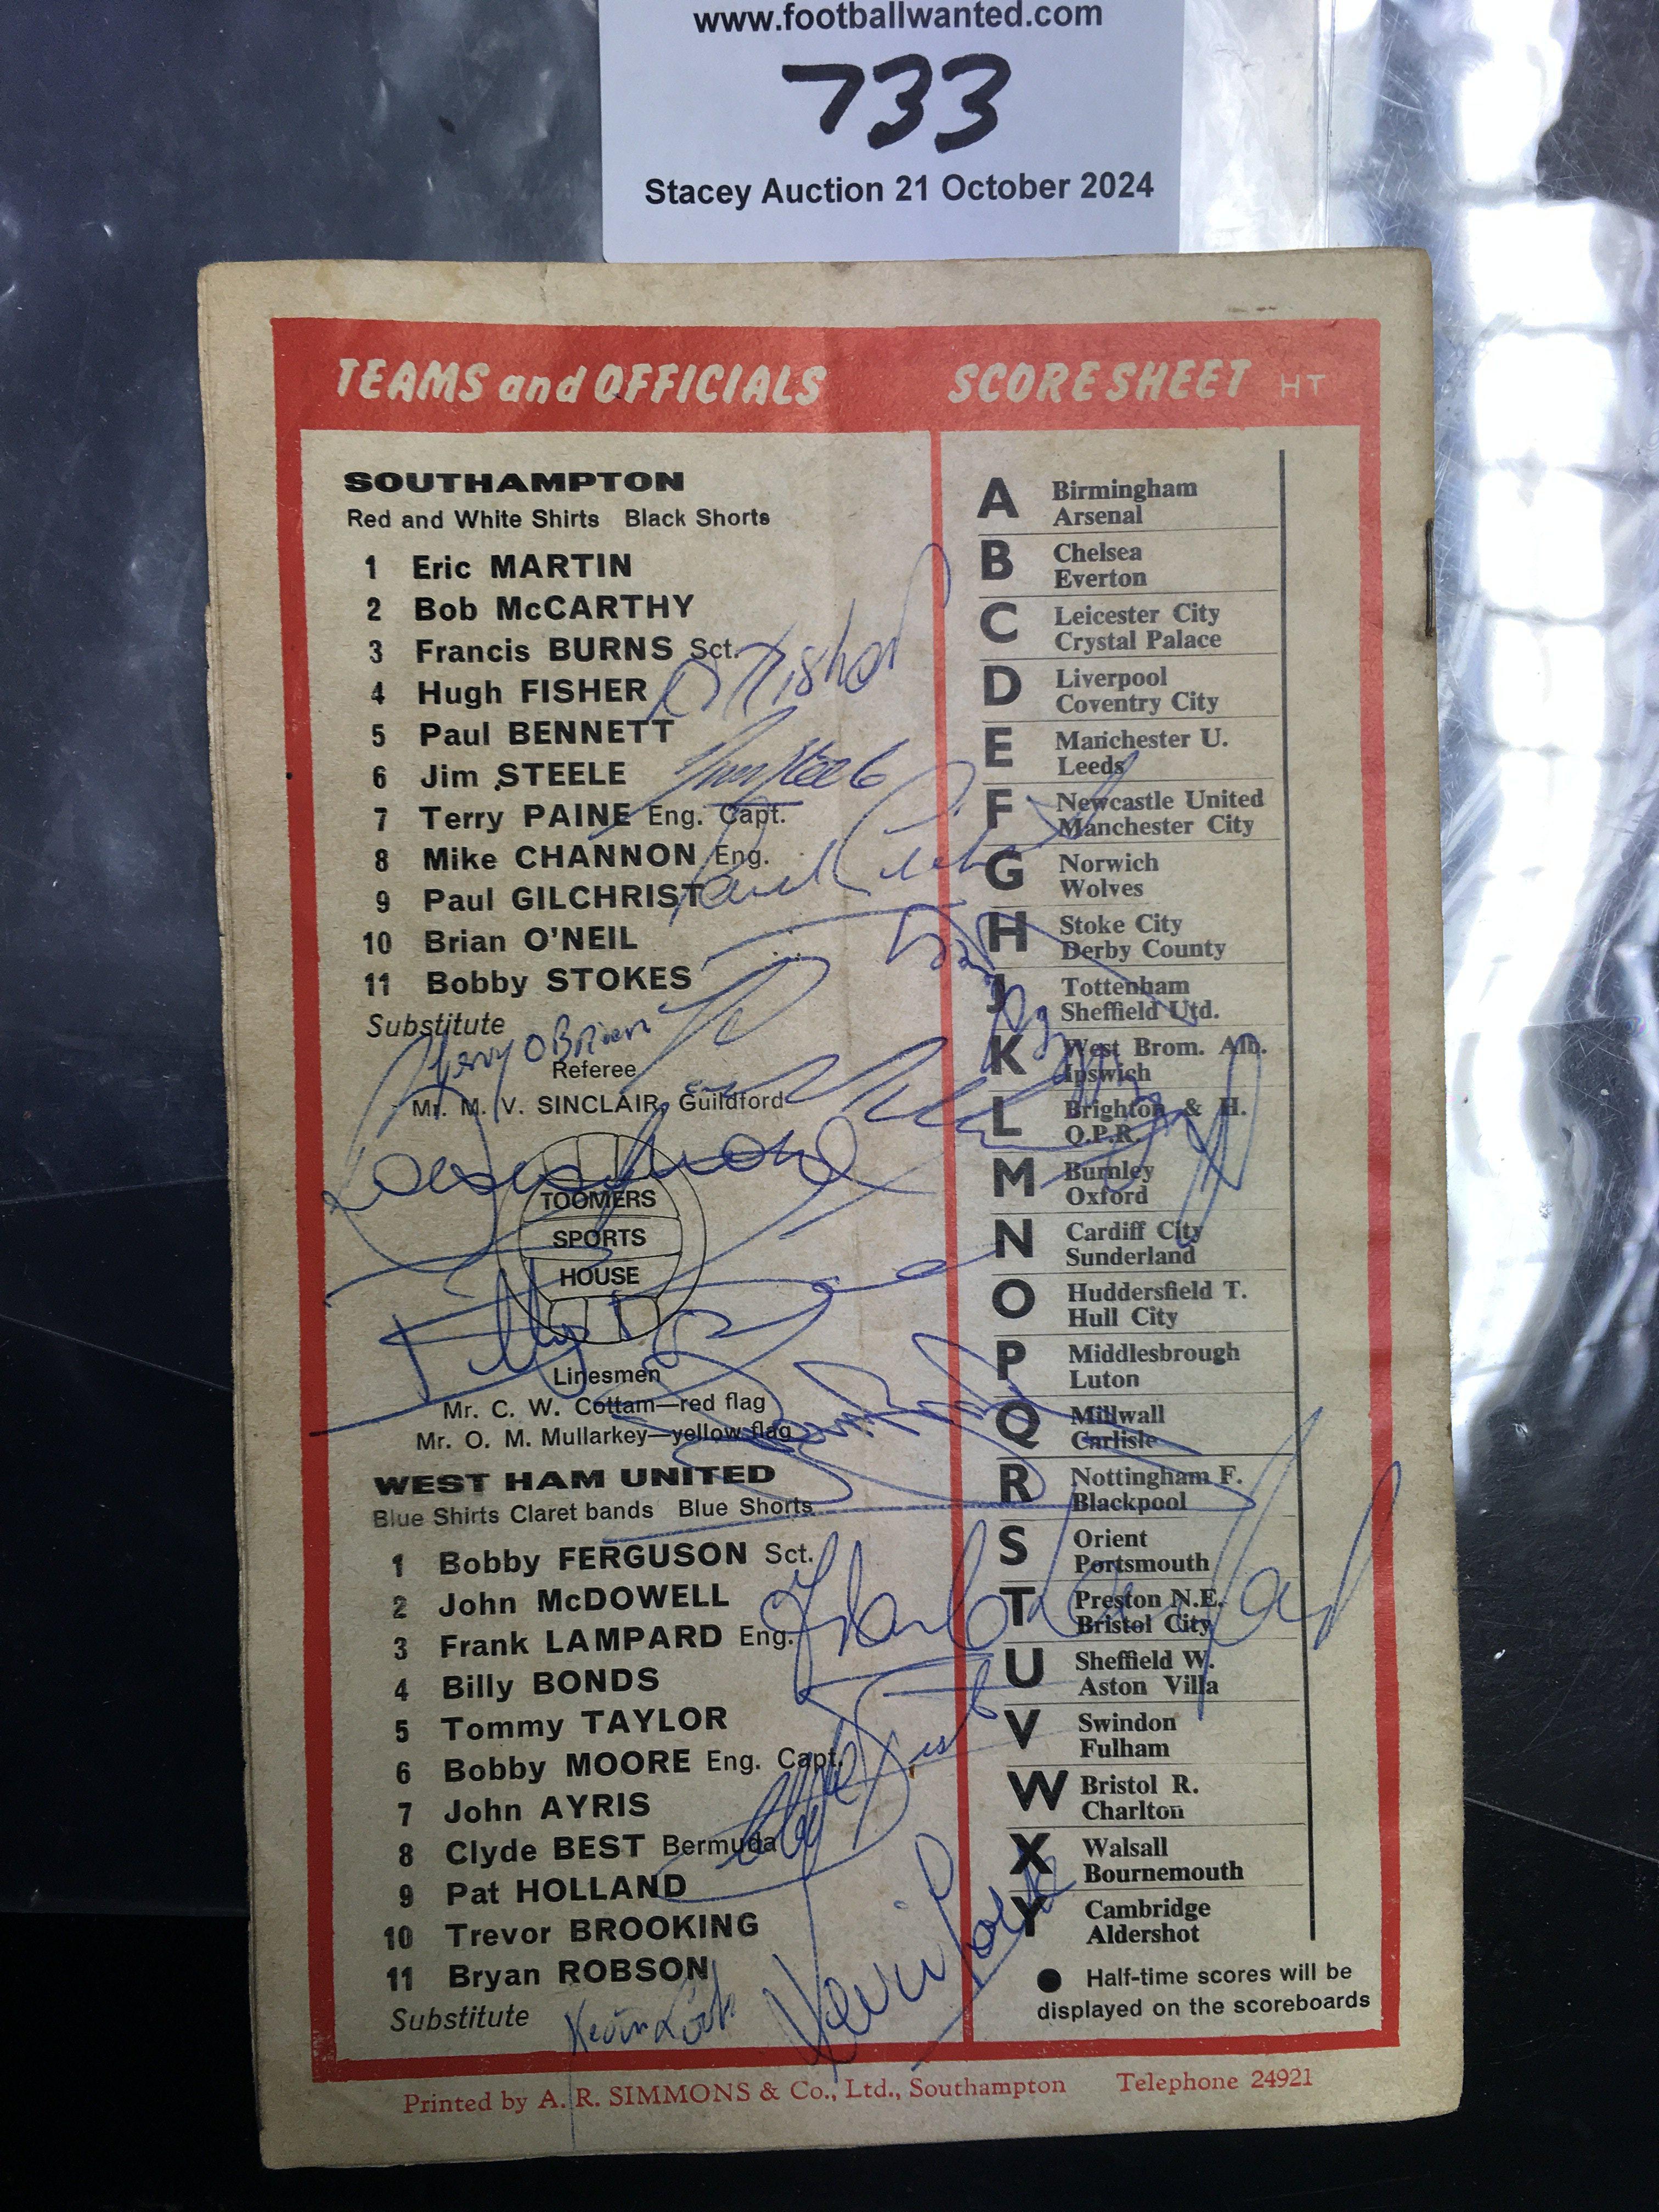 www.footballwanted.com
733
Stacey Auction 21 October 2024
TEAMS and OFFICIALS
SOUTHAMPTON
Red and White Shirts Black Shorts
1 Eric MARTIN
2 Bob McCARTHY
3 Francis BURNS Sct.
4 Hugh FISHER
5 Paul BENNETT
6 Jim STEELE
7 Terry PAINE Eng. Capt.
8 Mike CHANNON Eng.
9 Paul GILCHRIST
10 Brian O'NEIL
11 Bobby STOKES
Substitute
Gerry O'Brien
Referee
Mr. M. V. SINCLAIR, Guildford
TOOMERS
SPORTS
HOUSE
Linesmen
Mr. C. W. Cottam—red flag
Mr. O. M. Mullarkey—yellow flag
WEST HAM UNITED
Blue Shirts Claret bands Blue Shorts
1 Bobby FERGUSON Sct.
2 John McDOWELL
3 Frank LAMPARD Eng.
4 Billy BONDS
5 Tommy TAYLOR
6 Bobby MOORE Eng. Capt.
7 John AYRIS
8 Clyde BEST Bermuda
9 Pat HOLLAND
10 Trevor BROOKING
11 Bryan ROBSON
Substitute Kevin Lock
Kevin Lock
SCORE SHEET HT
A Birmingham
Arsenal
B Chelsea
Everton
C Leicester City
Crystal Palace
D Liverpool
Coventry City
E Manchester U.
Leeds
F Newcastle United
Manchester City
G Norwich
Wolves
H Stoke City
Derby County
J Tottenham
Sheffield Utd.
K West Brom. Alb.
Ipswich
L Brighton & H.
Q.P.R.
M Burnley
Oxford
N Cardiff City
Sunderland
O Huddersfield T.
Hull City
P Middlesbrough
Luton
Q Millwall
Carlisle
R Nottingham F.
Blackpool
S Orient
Portsmouth
T Preston N.E.
Bristol City
U Sheffield W.
Aston Villa
V Swindon
Fulham
W Bristol R.
Charlton
X Walsall
Bournemouth
Y Cambridge
Aldershot
● Half-time scores will be
displayed on the scoreboards
Printed by A. R. SIMMONS & Co., Ltd., Southampton Telephone 24921